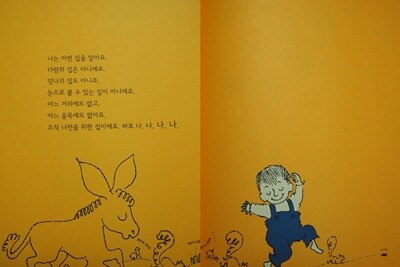 나는 어떤 집을 알아요.
다람쥐 집은 아니에요.
당나귀 집도 아니죠.
눈으로 볼 수 있는 집이 아니에요.
어느 거리에도 없고,
어느 골목에도 없어요.
오직 나만을 위한 집이에요. 바로 나, 나, 나, 나.